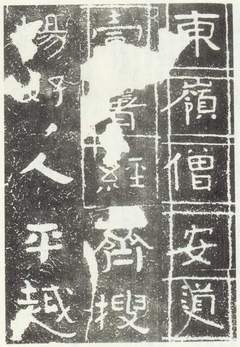 東嶺僧安道
壹署經齊搜
揚好人平越